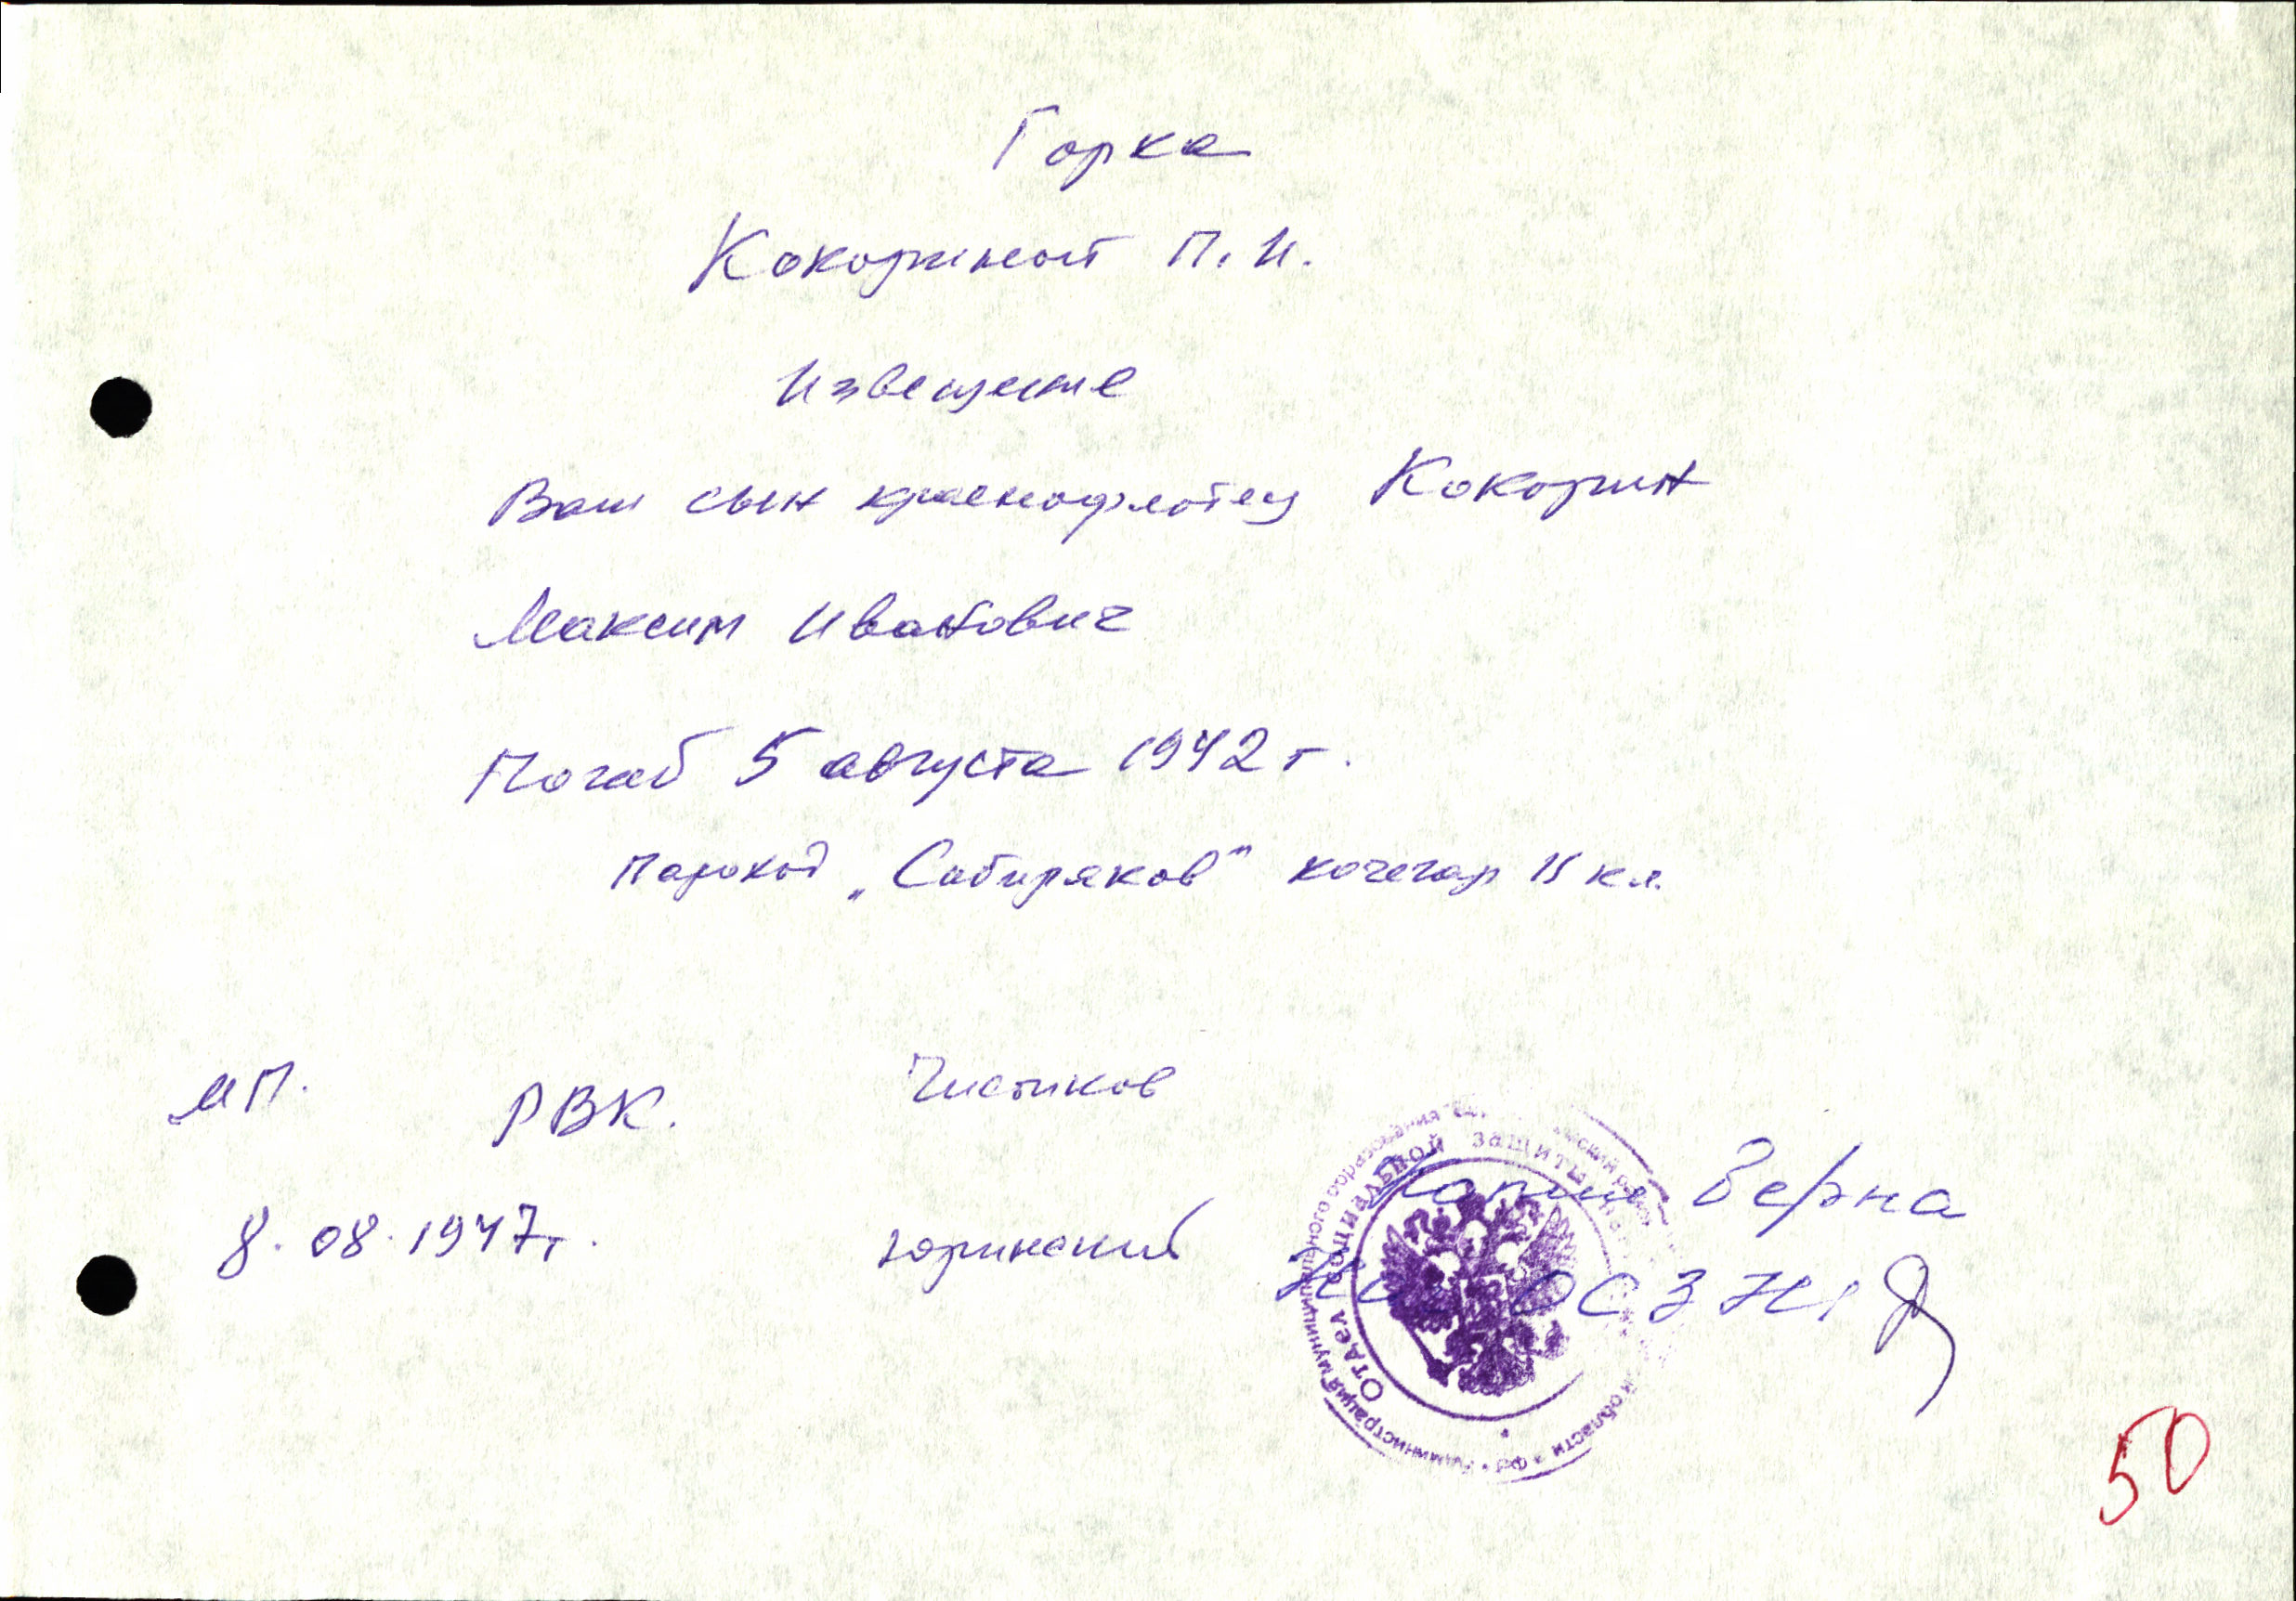 Горка
Кокориной П. И.
Извещение
Ваш сын краснофлотец Кокорин
Максим Иванович
Погиб 5 августа 1942 г.
Пароход „Сибиряков" кочегар II кл.
МП. РВК. Чистиков
8. 08. 1947г. Юринский
Отдел социальной защиты
Администрация муниципального образования
области
Копия Верна
Нач ОСЗН
50